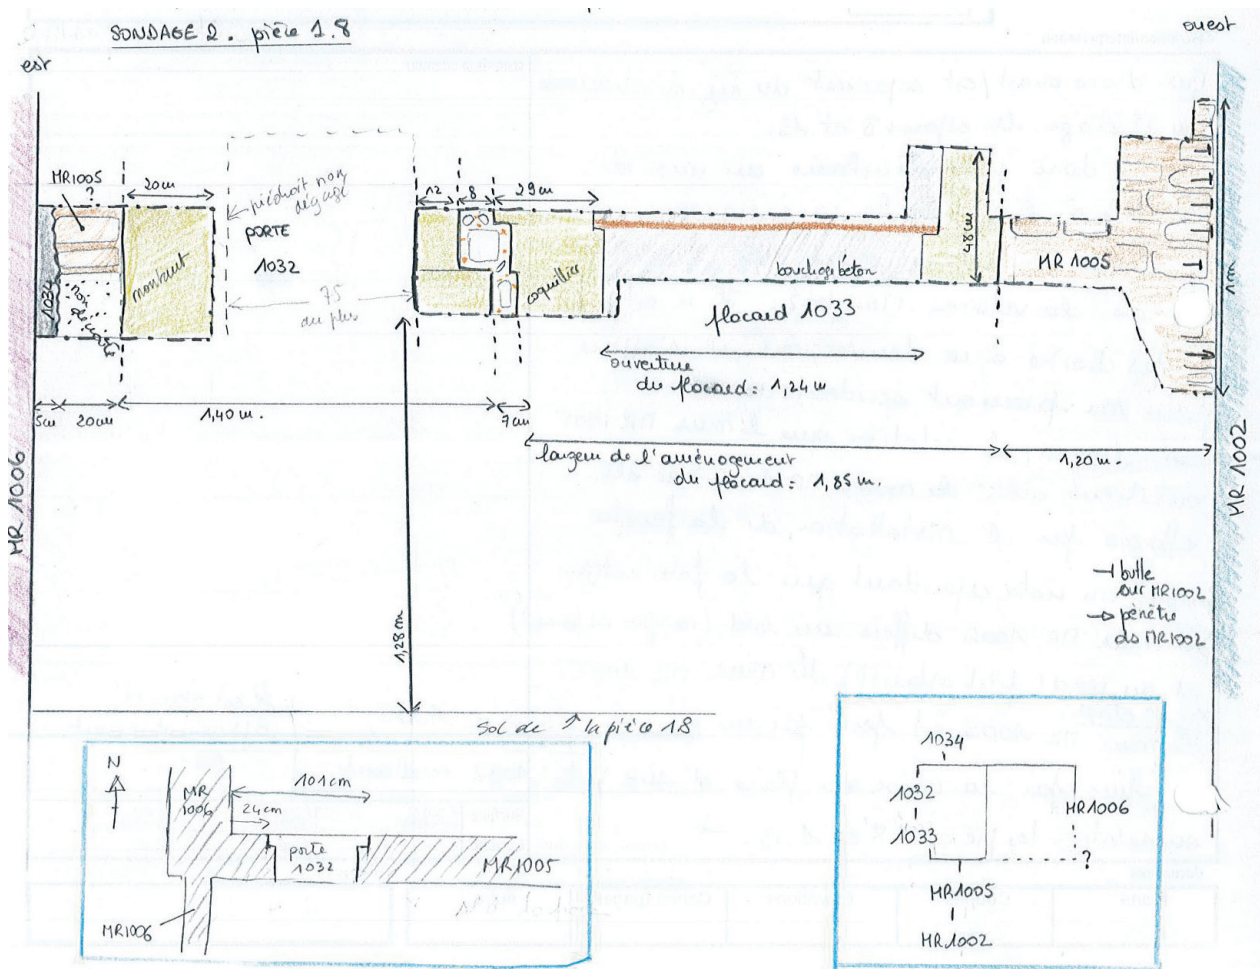 SONDAGE 2. pièce 1.8
ouest
est
MR1005
?
20cm
piédroit non
dégagé
PORTE
1032
montant
1034
non
75
au plus
12
8
29cm
coquillier
bouchage béton
placard 1033
48cm
MR 1005
1m
ouverture
du placard = 1,24m
5cm
20cm
1,40m.
7cm
largeur de l'aménagement
du placard = 1,85m.
1,20m.
MR 1006
MR 1002
1,28cm
⊣ butte
sur MR1002
→ pénètre
ds MR1002
Sol de la pièce 18
N
MR
1006
101cm
24cm
porte
1032
MR1005
MR1006
1034
1032
MR1006
1033
?
MR1005
MR1002